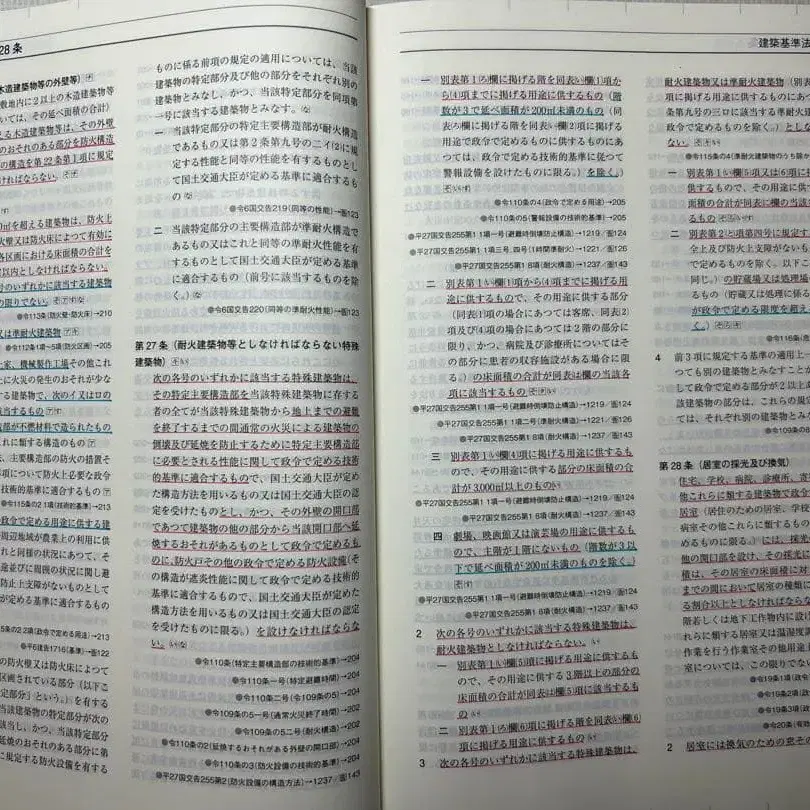 28条
木造建築物等の外壁等)
敷地内に2以上の木造建築物等
いては、その延べ面積の合計)
える木造建築物等は、その外壁
のおそれのある部分を防火構造
の構造を第22条第1項に規定
なければならない。
㎡を超える建築物は、防火上
火壁又は防火床によつて有効に
各区画における床面積の合計を
以内としなければならない。
号のいずれかに該当する建築物
の限りでない。
●令113条(防火壁・防火床)→210
又は準耐火建築物
●令112条1項~5項(防火区画)→205
上家、機械製作工場その他これ
に火災の発生のおそれが少な
する建築物で、次のイ又はロの
該当するもの
部が不燃材料で造られたもの
れに類する構造のもの
、主要構造部の防火の措置そ
項について防火上必要な政令
技術的基準に適合するもの
●令115条の2 1項(技術的基準)→213
政令で定める用途に供する建
周辺地域が農業上の利用に供
れと同様の状況にあつて、そ
途並びに周囲の状況に関し避
防止上支障がないものとして
が定める基準に適合するもの
5条の2 2項(政令で定める用途)→213
●平6建告1716(基準)→面122
の防火壁又は防火床によつて
区画されている部分(以下こ
特定部分」という。)を有する
当該建築物の特定部分が次の
該当し、かつ、当該特定部分
延焼のおそれのある部分に第
に規定する防火設備を有する
ものに係る前項の規定の適用については、当該
建築物の特定部分及び他の部分をそれぞれ別の
建築物とみなし、かつ、当該特定部分を同項第
一号に該当する建築物とみなす。
一 当該特定部分の特定主要構造部が耐火構造
であるもの又は第2条第九号の二イ(2)に規
定する性能と同等の性能を有するものとし
て国土交通大臣が定める基準に適合するも
の
●令6国交告219(同等の性能)→面123
二 当該特定部分の主要構造部が準耐火構造で
あるもの又はこれと同等の準耐火性能を有
するものとして国土交通大臣が定める基準
に適合するもの(前号に該当するものを除
く。)
●令6国交告220(同等の準耐火性能)→面123
第27条(耐火建築物等としなければならない特殊
建築物)
次の各号のいずれかに該当する特殊建築物は、
その特定主要構造部を当該特殊建築物に存する
者の全てが当該特殊建築物から地上までの避難
を終了するまでの間通常の火災による建築物の
倒壊及び延焼を防止するために特定主要構造部
に必要とされる性能に関して政令で定める技術
的基準に適合するもので、国土交通大臣が定め
た構造方法を用いるもの又は国土交通大臣の認
定を受けたものとし、かつ、その外壁の開口部
であつて建築物の他の部分から当該開口部へ延
焼するおそれがあるものとして政令で定めるも
のに、防火戸その他の政令で定める防火設備(そ
の構造が遮炎性能に関して政令で定める技術的
基準に適合するもので、国土交通大臣が定めた
構造方法を用いるもの又は国土交通大臣の認定
を受けたものに限る。)を設けなければならな
い。
●令110条(特定主要構造部の技術的基準)→204
●令110条一号(特定避難時間)→204
●令110条二号(令109条の5)→204
●令109条の5一号(通常火災終了時間)→202
●令109条の5二号(耐火構造)→202
●令110条の2(延焼するおそれがある外壁の開口部)→204
●令110条の3(防火設備の技術的基準)→204
●平27国交告255第2(防火設備の構造方法)→1237/面143
建築基準法
一 別表第1(ろ)欄に掲げる階を同表(い)欄(1)項か
ら(4)項までに掲げる用途に供するもの(階
数が3で延べ面積が200㎡未満のもの(同
表(ろ)欄に掲げる階を同表(い)欄(2)項に掲げる
用途で政令で定めるものに供するものにあ
つては、政令で定める技術的基準に従つて
警報設備を設けたものに限る。)を除く。)
●令110条の4(政令で定める用途)→205
●令110条の5(警報設備の技術的基準)→205
●平27国交告255第1 1項一号(避難時倒壊防止構造)→1219/面124
●平27国交告255第1 1項三号、四号(1時間準耐火)→1221/面126
●平27国交告255第1 8項(耐火構造)→1237/面143
二 別表第1(い)欄(1)項から(4)項までに掲げる用
途に供するもので、その用途に供する部分
((1)項の場合にあつては客席、同表(2)
項及び(4)項の場合にあつては2階の部分に
限り、かつ、病院及び診療所についてはそ
の部分に患者の収容施設がある場合に限
る。)の床面積の合計が同表(は)欄の当該各
項に該当するもの
●平27国交告255第1 1項一号(避難時倒壊防止構造)→1219/面124
●平27国交告255第1 1項二号(準耐火構造)→1221/面126
●平27国交告255第1 8項(耐火構造)→1237/面143
三 別表第1(い)欄(4)項に掲げる用途に供するも
ので、その用途に供する部分の床面積の合
計が3,000㎡以上のもの
●平27国交告255第1 1項一号(避難時倒壊防止構造)→1219/面124
●平27国交告255第1 8項(耐火構造)→1237/面143
四 劇場、映画館又は演芸場の用途に供するも
ので、主階が1階にないもの(階数が3以
下で延べ面積が200㎡未満のものを除く。)
●平27国交告255第1 1項一号(避難時倒壊防止構造)→1219/面124
●平27国交告255第1 8項(耐火構造)→1237/面143
2 次の各号のいずれかに該当する特殊建築物は、
耐火建築物としなければならない。
一 別表第1(い)欄(5)項に掲げる用途に供するも
ので、その用途に供する3階以上の部分の
床面積の合計が同表(は)欄(5)項に該当するも
の
二 別表第1(ろ)欄(6)項に掲げる階を同表(い)欄(6)
項に掲げる用途に供するもの
3 次の各号のいずれかに該当する特殊建築物は、
耐火建築物又は準耐火建築物(別表
項に掲げる用途に供するものにあつて
条第九号の三ロに該当する準耐火建
政令で定めるものを除く。)とし
ない。
●令115条の4(準耐火建築物のうち除か
一 別表第1(い)欄(5)項又は(6)項に掲
供するもので、その用途に供する
面積の合計が同表(に)欄の当該
るもの
二 別表第2(と)項第四号に規定す
全上及び防火上支障がないも
で定めるものを除く。以下こ
同じ。)の貯蔵場又は処理場
るもの(貯蔵又は処理に係る
が政令で定める限度を超え
く。)
●令116条(危
4 前3項に規定する基準の適用上一
つても別の建築物とみなすことが
して政令で定める部分が2以上
該建築物の部分は、これらの規定
ては、それぞれ別の建築物とみ
●令109条の8
第28条(居室の採光及び換気)
住宅、学校、病院、診療所、寄
他これらに類する建築物で政令で
居室(居住のための居室、学校
病室その他これらに類するもの
めるものに限る。)には、採光
他の開口部を設け、その採光に
積は、その居室の床面積に対
までの間において居室の種類
る割合以上としなければならな
階若しくは地下工作物内に設け
れらに類する居室又は温湿度調
作業を行う作業室その他用途上
室については、この限りでない。
●令19条1項
●令19条2項
●令19条3項
●令20条(有効
2 居室には換気のための窓その